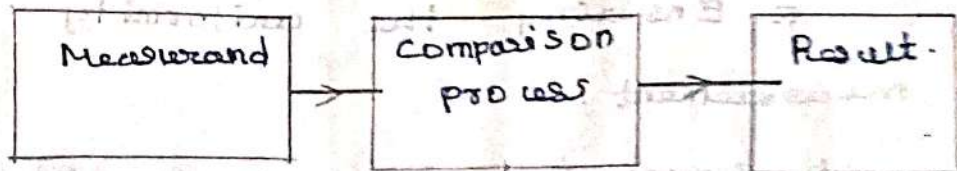 Measurand
Comparison
process
Result.